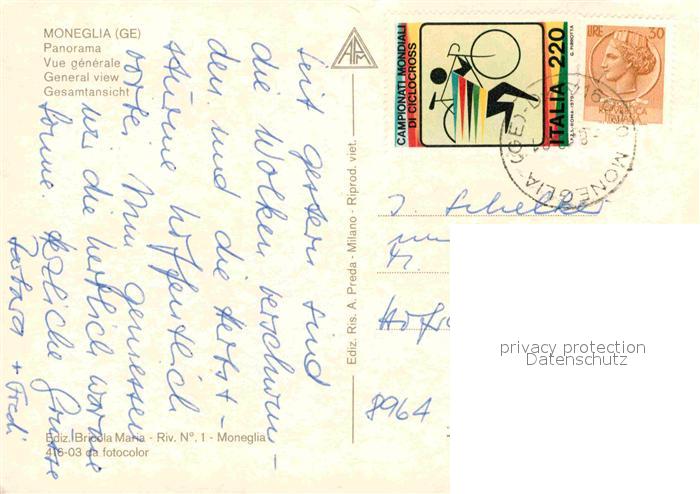 MONEGLIA (GE)
Panorama
Vue générale
General view
Gesamtansicht
Seit gestern sind
die Wolken verschwun-
den und die Herbst-
stürme hoffentlich
vorbei. Nun geniessen
wir die herrlich warme
Sonne. Herzliche Grüsse
Barbara + Fredi
Ediz. Bricola Maria - Riv. N°. 1 - Moneglia
416-03 da fotocolor
Ediz. Ris. A. Preda - Milano - Riprod. viet.
CAMPIONATI MONDIALI
DI CICLOCROSS
ITALIA 220
LIRE 30
REPUBBLICA
ITALIANA
MONEGLIA (GE)
8964
privacy protection
Datenschutz